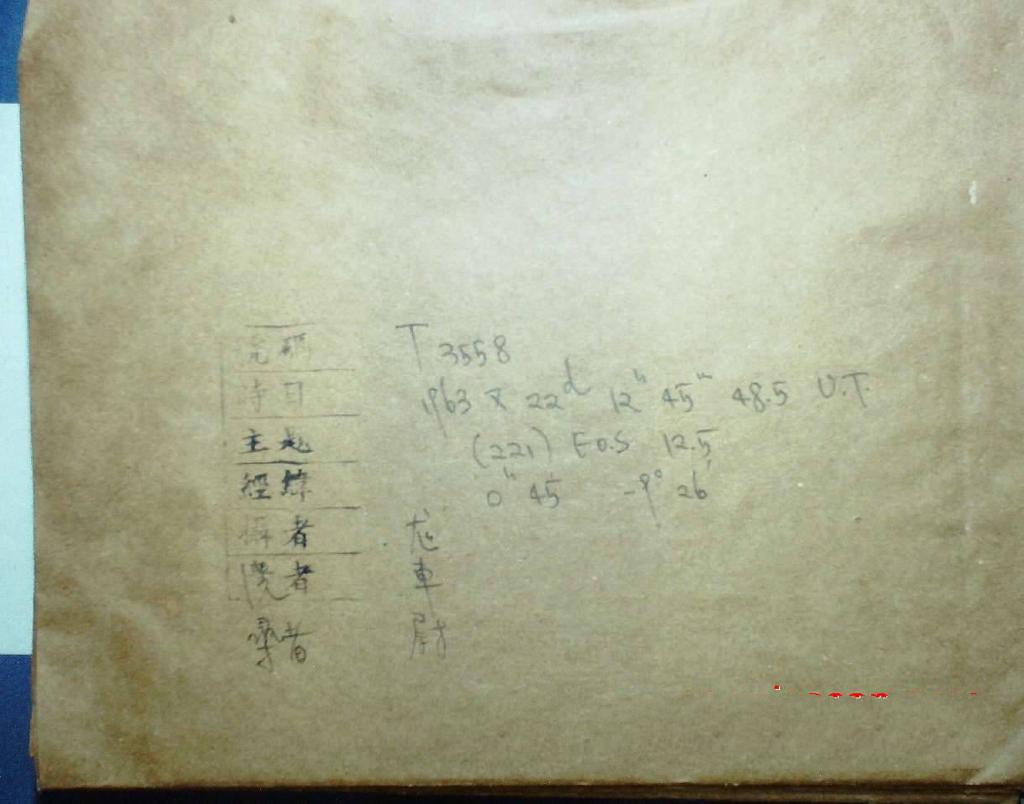 号碼 T 3558
時日 1963 X 22d 12h 45m 48.5 U.T.
主起 (221) Eos 12.5
經緯 0h 45 -9° 26'
攝者
者 車
者 尉